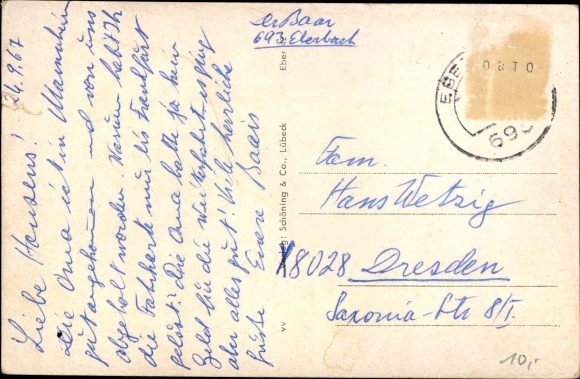 24.9.67
Liebe Hansens!
Die Oma ist in Mannheim
gut angekommen und von uns
abgeholt worden. Warum habt Ihr
die Fahrkarte nur bis Frankfurt
gelöst? Die Oma hatte ja kein
Geld für die Weiterfahrt. es ging
aber alles gut! Viele herzliche
Grüße Eure Baars
er Baar
693 Eberbach
Eber
693
Fam.
Hans Wetzig
X8028 Dresden
Saxonia-Str 8/I.
Verlag: Schöning & Co., Lübeck
VV
10,-